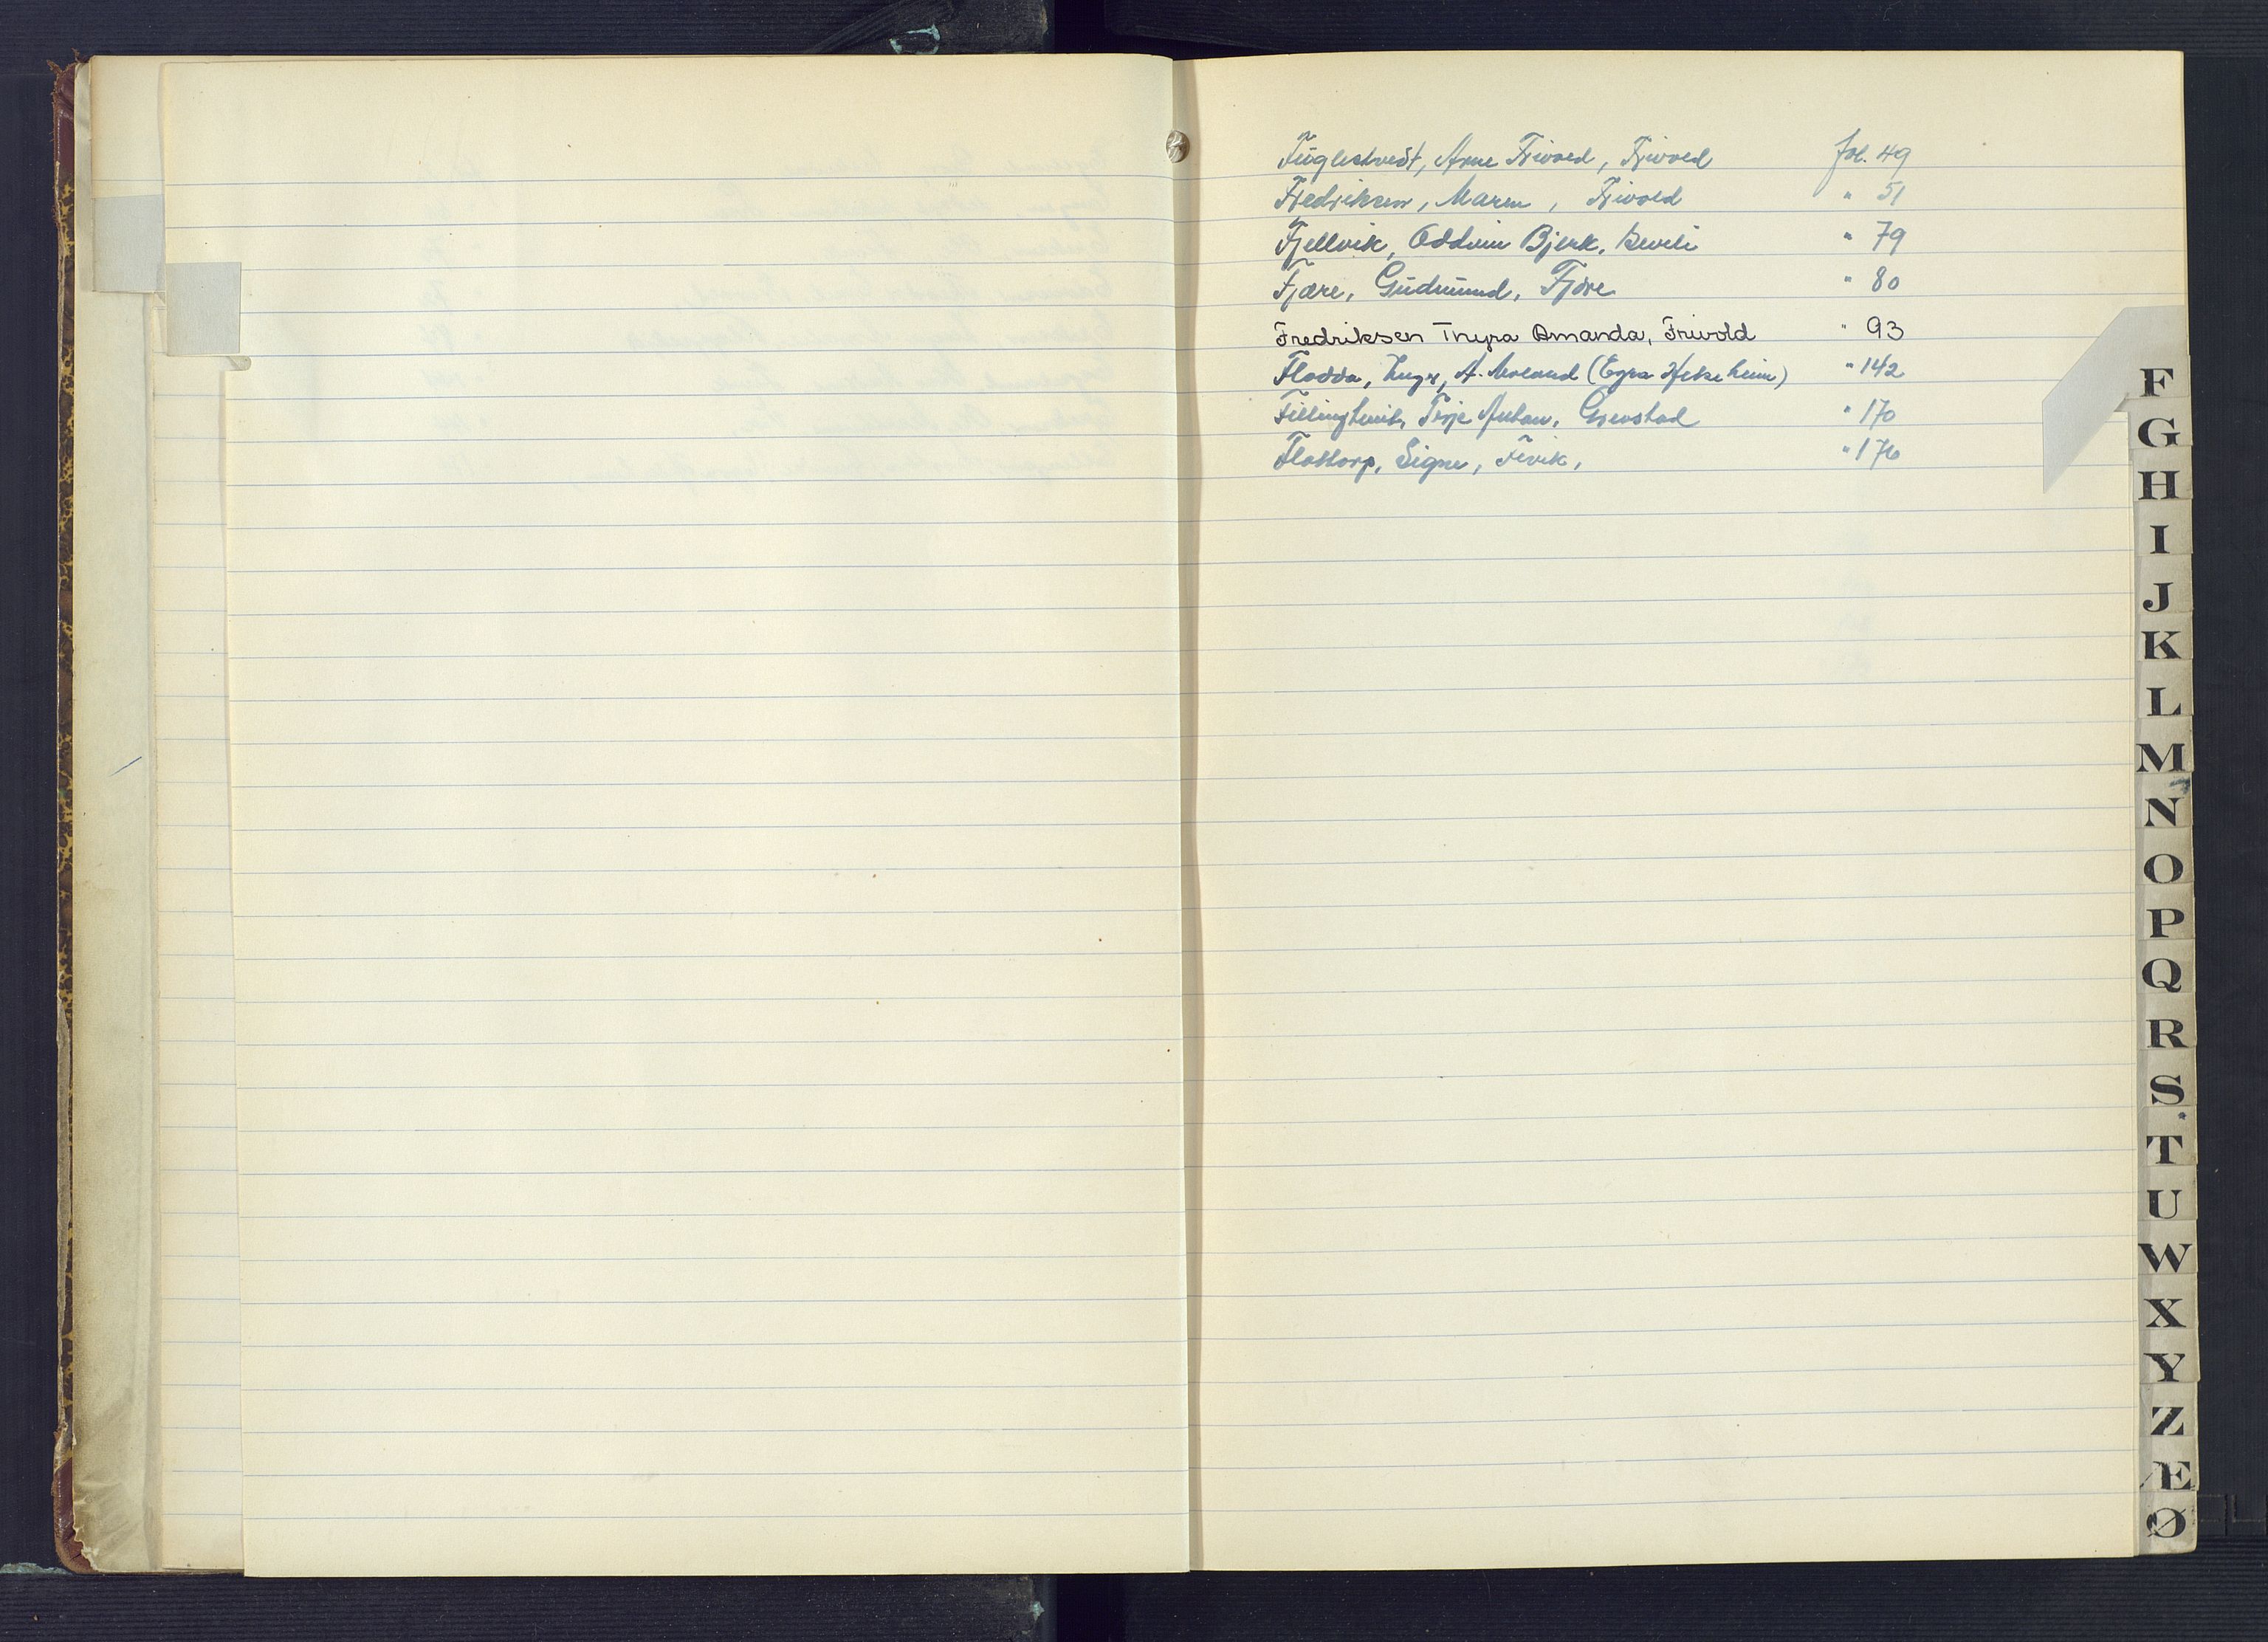 Fuglestvedt, Arne Frivold, Frivold fol. 49
Fredriksen, Maren, Frivold " 51
Fjellvik, Oddvin Bjerk, " 79
Fjære, Gudmund, Fjære " 80
Fredriksen Thyra Amanda, Frivold " 93
Flodda, Inger, A. Moland (Eyra Heksheim) " 142
Terje Anton, Grevstad " 170
Flottorp, Signe, Fevik, " 176
F
G
H
I
J
K
L
M
N
O
P
Q
R
S
T
U
W
X
Y
Z
Æ
Ø